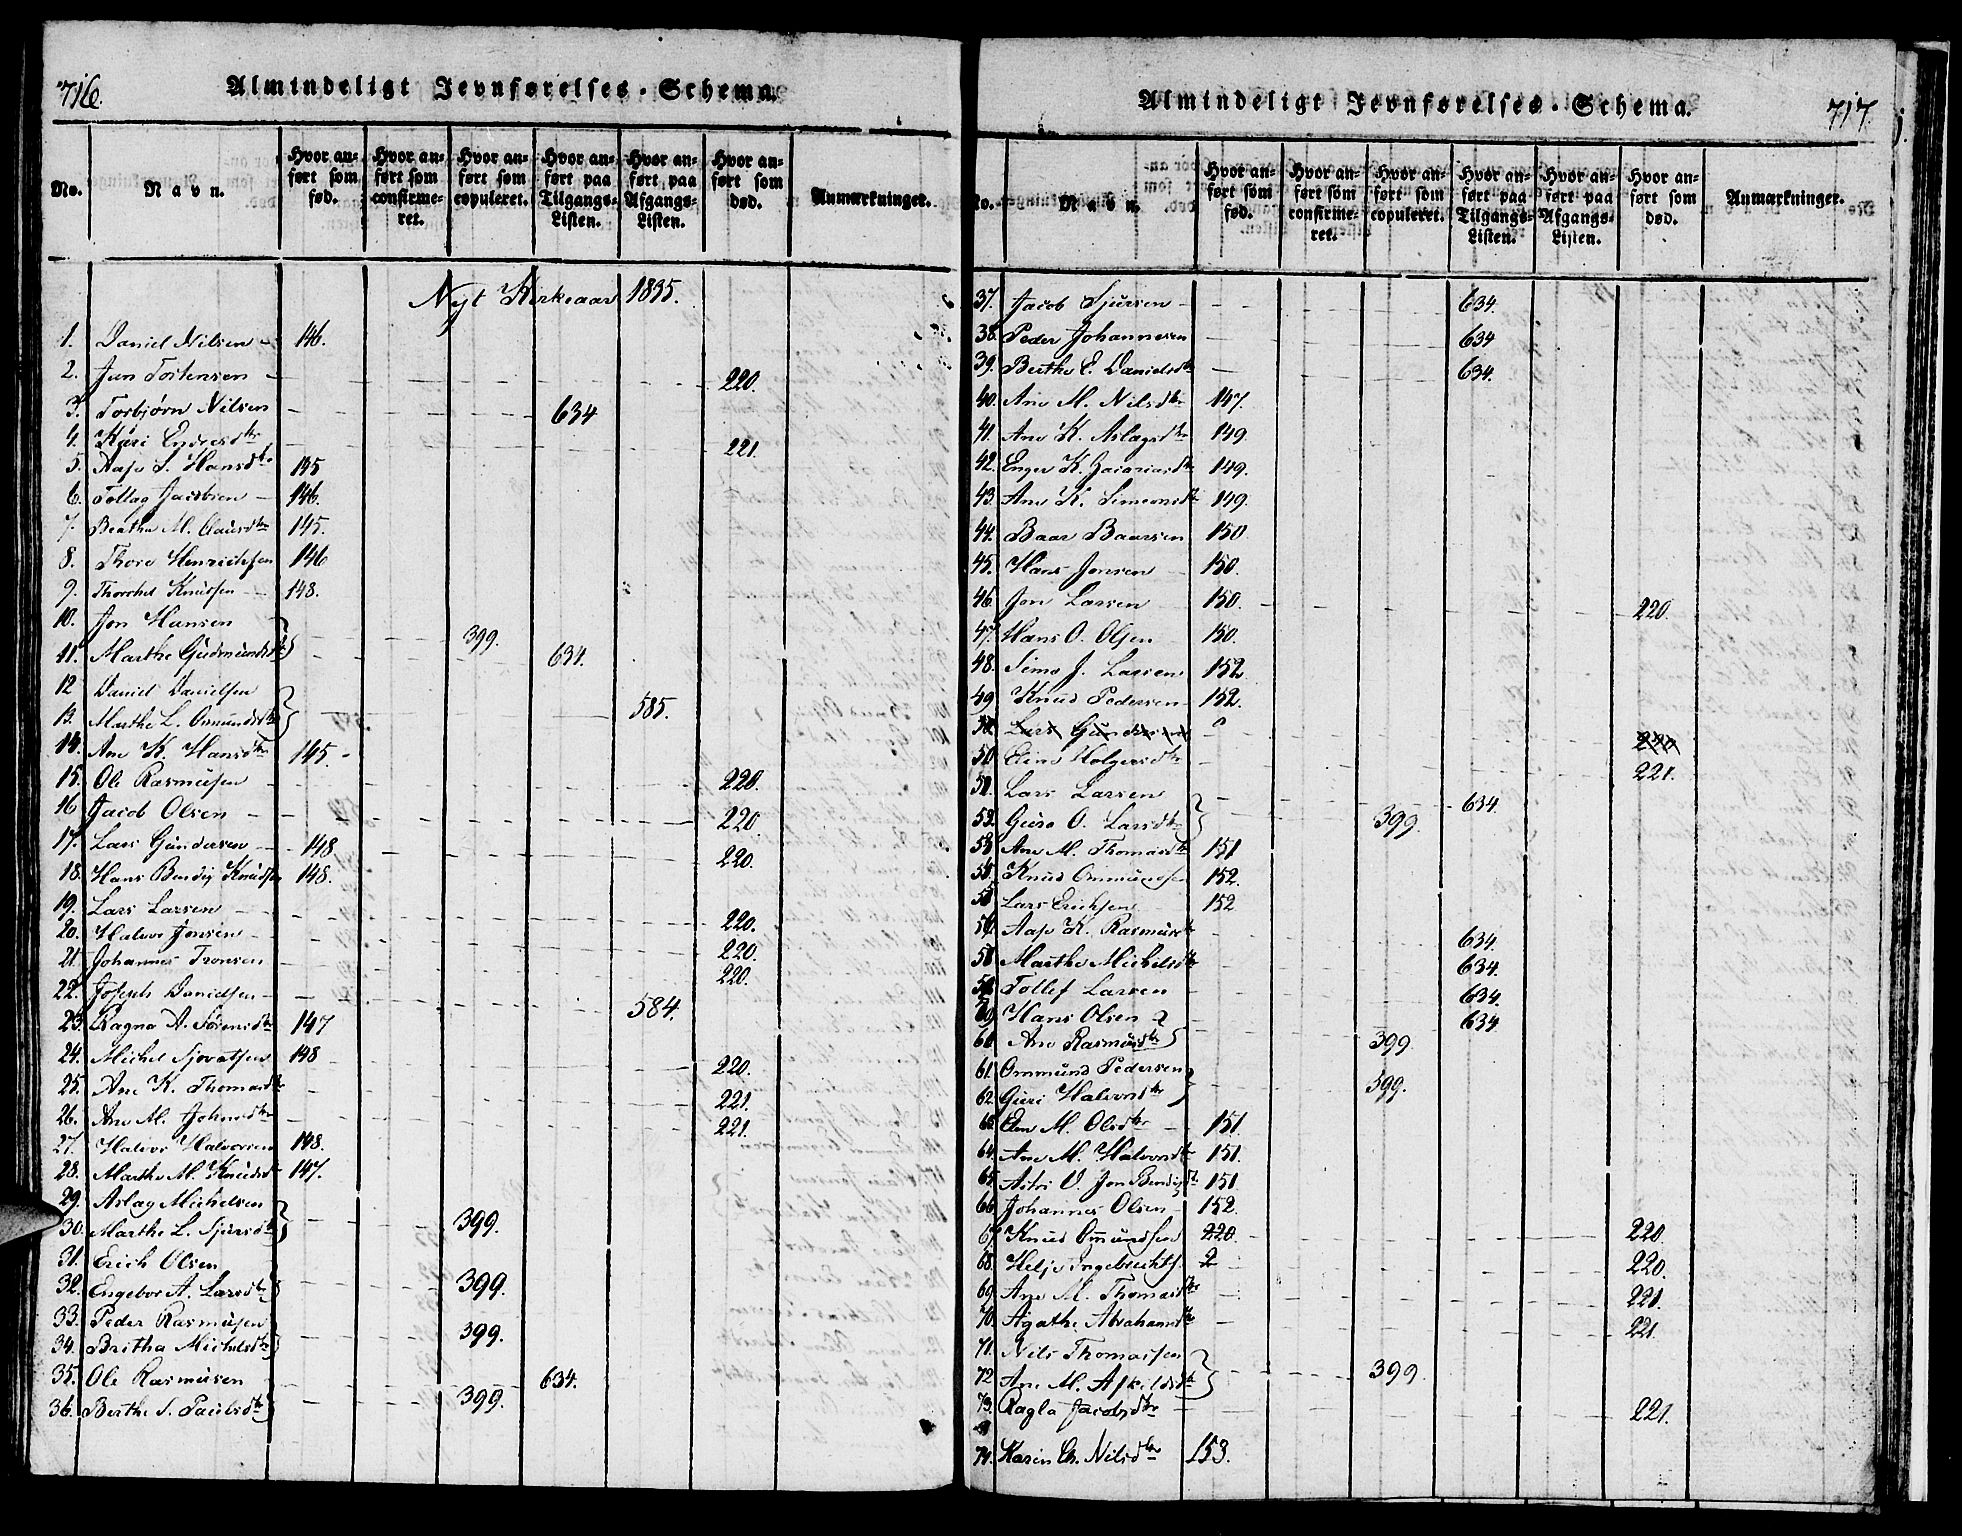 716.
Almindeligt Jevnførelses-Schema.
No. Navn. Hvor anført som fød. Hvor anført som confirmeret. Hvor anført som copuleret. Hvor anført paa Tilgangs-Listen. Hvor anført paa Afgangs-Listen. Hvor anført som død. Anmærkninger.
Nyt Kirkeaar 1835.
1. Daniel Nilsen 146.
2. Jan Tostensen 220.
3. Torbjørn Nilsen 634
4. Kari Endresdtr 221.
5. Aase S. Hansdtr 145
6. Tollag Jacobsen 146.
7. Bertha M. Clausdtr 145.
8. Thore Henrichsen 146
9. Thorchel Knudsen 148.
10. Jon Hansen 399.
11. Marthe Gudmundsdtr 634.
12 Daniel Danielsen
13. Marthe L. Omundsdtr 585.
14. Ane K. Hansdtr 145.
15. Ole Rasmusen 220.
16 Jacob Olsen 220.
17. Lars Gundersen 148 220.
18. Hans Bendig Knudsen 148.
19. Lars Larsen 220.
20. Halvor Jonsen 220.
21. Johannes Tronsen 220.
22. Joseph Danielsen 584.
23. Ragna A. Sørensdtr 147
24. Michel Sjovatsen 148 220.
25. Ane K. Thomasdtr 221.
26. Ane M. Johnsdtr 221.
27. Halvor Halvorsen 148.
28. Marthe M. Knudsdtr 147.
29. Aslag Michelsen
30. Marthe L. Sjursdtr 399.
31. Erich Olsen
32. Engebor A. Larsdtr 399.
33. Peder Rasmusen
34. Britha Michelsdtr 399.
35. Ole Rasmusen 634.
36. Berthe S. Paulsdtr 399.
Almindeligt Jevnførelses-Schema.
717.
No. Navn. Hvor anført som fød. Hvor anført som confirmeret. Hvor anført som copuleret. Hvor anført paa Tilgangs-Listen. Hvor anført paa Afgangs-Listen. Hvor anført som død. Anmærkninger.
37. Jacob Sjursen 634.
38. Peder Johannesen 634
39. Berthe E. Danielsdtr 634.
40. Ane M. Nilsdtr 147.
41. Ane K. Aslagsdtr 149.
42. Enger K. Zacariasdtr 149.
43. Ane K. Simeonsdtr 149
44. Baar Baarsen 150
45. Hans Jonsen 150.
46. Jon Larsen 150. 220.
47. Hans O. Olsen 150.
48. Simo J. Larsen 152
49 Knud Pedersen 152.
50. Lars Gundersen 220
50 Elen Holgersdtr 221.
51. Lars Larsen 634
52. Guro O. Larsdtr 399.
53. Ane M. Thomasdtr 151
54. Knud Ommundsen 152.
55 Lars Erichsen 152
Aase K. Rasmusdtr 634.
Marthe Michelsdtr 634.
Tollef Larsen 634.
Hans Olsen 634
60 Ane Rasmusdtr 399.
61. Ommund Pedersen
62. Guri Halvorsdtr 399.
63. Elen M. Olsdtr 151.
64. Ane M. Halvorsdtr 151.
65. V. Jon Bendigsdtr 151
66. Johannes Olsen 152.
67 Knud Ommundsen 220. 220.
68. Helje Ingebrechts. 2 220.
69. Ane M. Thomasdtr 221.
70. Agathe Abrahamsdtr 221
71. Nils Thomassen
72 Ane M. Askildsdtr 399
73. Ragla Jacobsdtr 221.
74. Karin Ch. Nilsdtr 153.